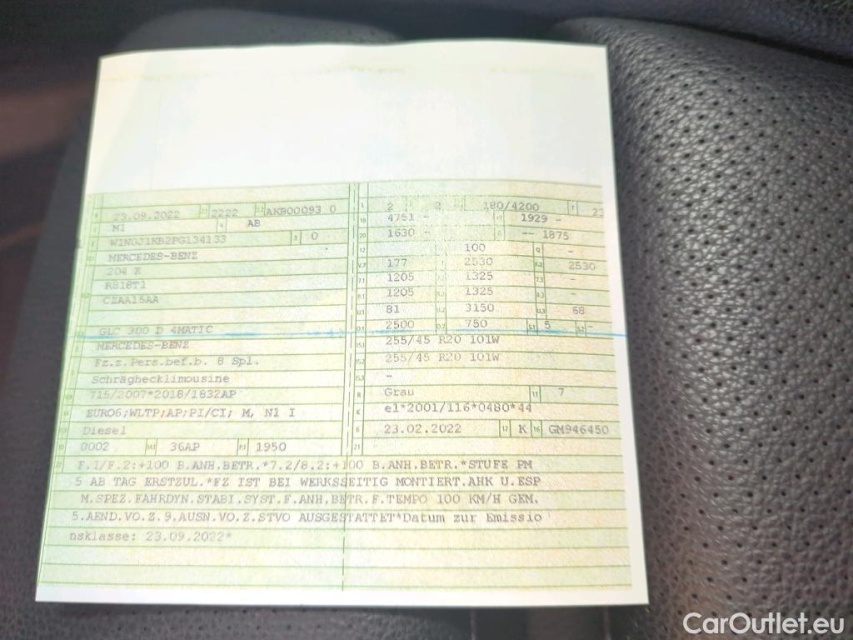 23.09.2022 2222 0
M1 AB
0
MERCEDES-BENZ
204 X
R818T1
GLC 300 D 4MATIC
MERCEDES-BENZ
Fz.z.Pers.bef.b. 8 Spl.
Schräghecklimousine
715/2007*2018/1832AP
EURO6;WLTP;AP;PI/CI; M, N1 I
Diesel
0002 36AP 1950
2 180/4200
4751 - 1929 -
1630 - -- 1875
100 -
177 2530 2530
1205 1325 -
1205 1325 -
81 3150 68
2500 750 5 -
255/45 R20 101W
255/45 R20 101W
-
Grau 7
e1*2001/116*0480*44
23.02.2022 K GM946450
F.1/F.2:+100 B.ANH.BETR.*7.2/8.2:+100 B.ANH.BETR.*STUFE PM
5 AB TAG ERSTZUL.*FZ IST BEI WERKSSEITIG MONTIERT.AHK U.ESP
M.SPEZ.FAHRDYN.STABI.SYST.F.ANH.BETR.F.TEMPO 100 KM/H GEM.
5.AEND.VO.Z.9.AUSN.VO.Z.STVO AUSGESTATTET*Datum zur Emissio
nsklasse: 23.09.2022*
CarOutlet.eu